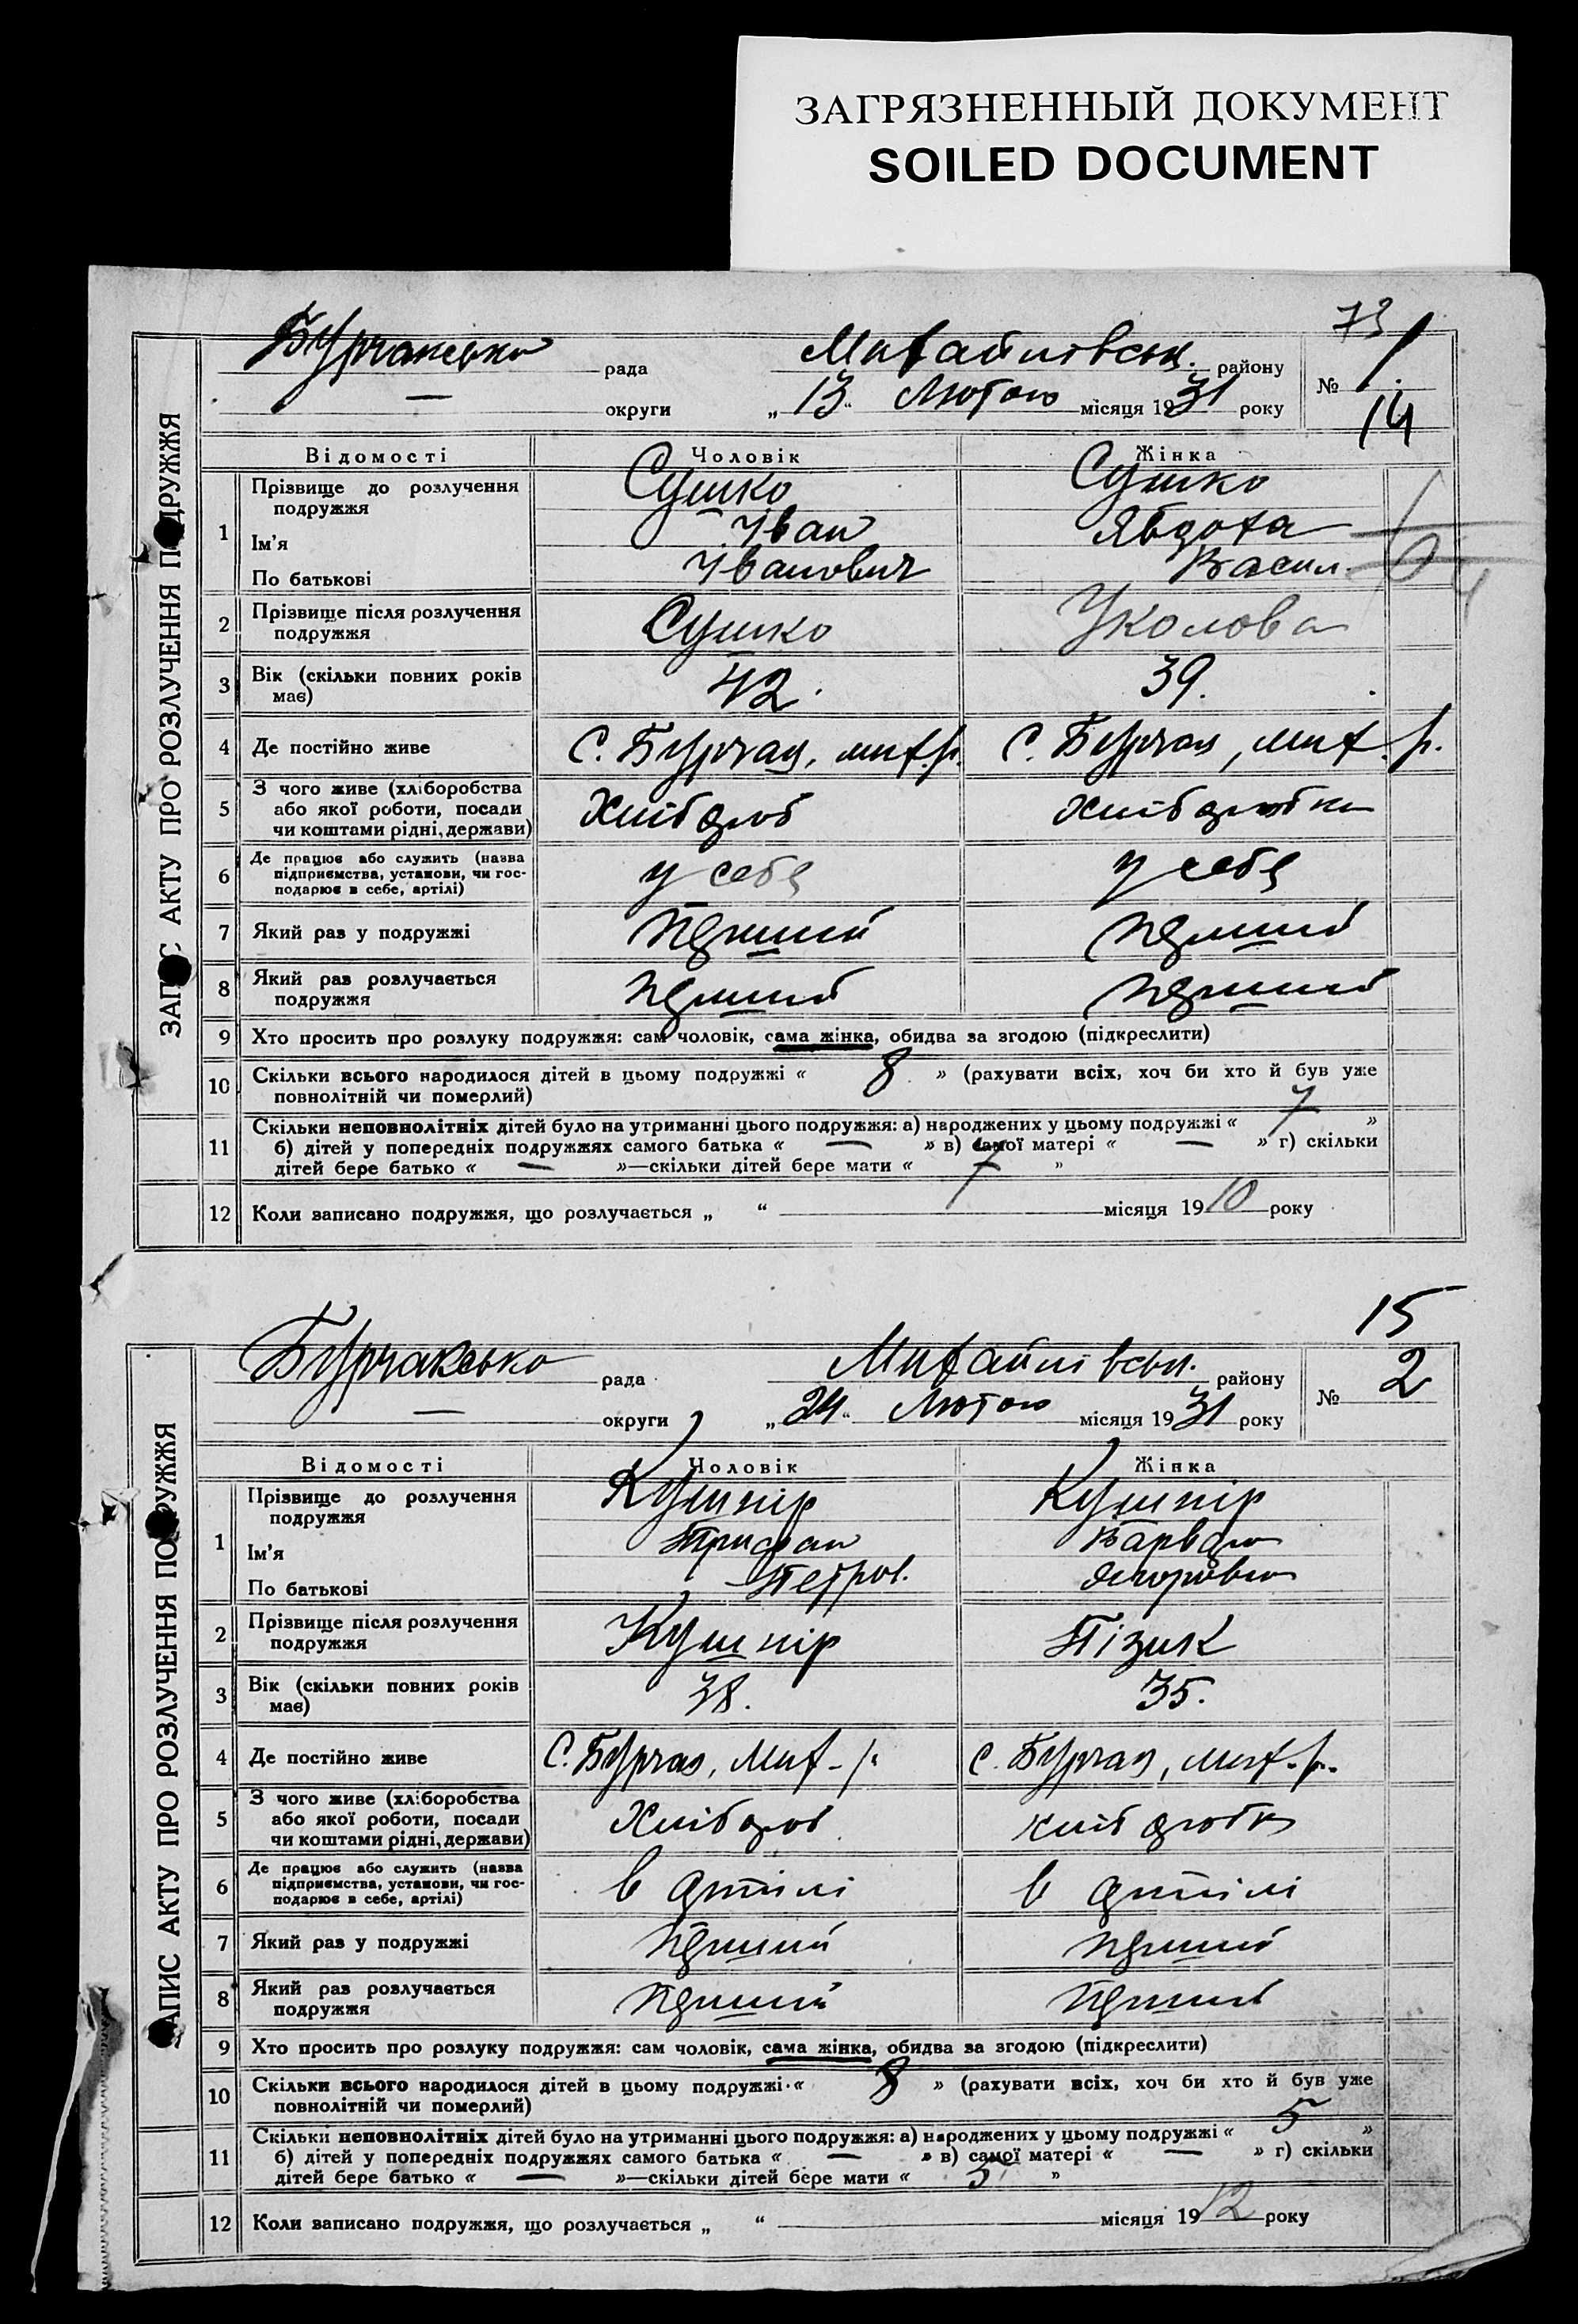 ЗАГРЯЗНЕННЫЙ ДОКУМЕНТ
SOILED DOCUMENT
73
ЗАПИС АКТУ ПРО РОЗЛУЧЕННЯ ПОДРУЖЖЯ
Бурчакська рада Михайлівськ. району № 1
— округи „13“ Лютого місяця 1931 року
14
Відомості Чоловік Жінка
1 Прізвище до розлучення подружжя Сушко Сушко
Ім'я Іван Явдоха
По батькові Іванович Васил.
2 Прізвище після розлучення подружжя Сушко Уколова
3 Вік (скільки повних років має) 42. 39.
4 Де постійно живе С. Бурчак, мих. р. С. Бурчак, мих. р.
5 З чого живе (хліборобства або якої роботи, посади чи коштами рідні, держави) Хлібороб Хліборобка
6 Де працює або служить (назва підприємства, установи, чи господарює в себе, артілі) у себе у себе
7 Який раз у подружжі Перший Перший
8 Який раз розлучається подружжя Перший Перший
9 Хто просить про розлуку подружжя: сам чоловік, сама жінка, обидва за згодою (підкреслити)
10 Скільки всього народилося дітей в цьому подружжі « 8 » (рахувати всіх, хоч би хто й був уже
повнолітній чи померлий)
11 Скільки неповнолітніх дітей було на утриманні цього подружжя: а) народжених у цьому подружжі « 7 »
б) дітей у попередніх подружжях самого батька « — » в) самої матері « — » г) скільки
дітей бере батько « — »—скільки дітей бере мати « 7 »
12 Коли записано подружжя, що розлучається „ “ місяця 1910 року
15
ЗАПИС АКТУ ПРО РОЗЛУЧЕННЯ ПОДРУЖЖЯ
Бурчакська рада Михайлівськ. району № 2
— округи „24“ Лютого місяця 1931 року
Відомості Чоловік Жінка
1 Прізвище до розлучення подружжя Кушнір Кушнір
Ім'я Трифан Варвара
По батькові Петров. Якторовна
2 Прізвище після розлучення подружжя Кушнір Пізик
3 Вік (скільки повних років має) 38. 35.
4 Де постійно живе С. Бурчак, Мих - р. С. Бурчак, мих. р.
5 З чого живе (хліборобства або якої роботи, посади чи коштами рідні, держави) Хлібороб хліборобка
6 Де працює або служить (назва підприємства, установи, чи господарює в себе, артілі) в артілі в артілі
7 Який раз у подружжі Перший Перший
8 Який раз розлучається подружжя Перший Перший
9 Хто просить про розлуку подружжя: сам чоловік, сама жінка, обидва за згодою (підкреслити)
10 Скільки всього народилося дітей в цьому подружжі « 8 » (рахувати всіх, хоч би хто й був уже
повнолітній чи померлий)
11 Скільки неповнолітніх дітей було на утриманні цього подружжя: а) народжених у цьому подружжі « 5 »
б) дітей у попередніх подружжях самого батька « — » в) самої матері « — » г) скільки
дітей бере батько « — »—скільки дітей бере мати « 5 »
12 Коли записано подружжя, що розлучається „ “ місяця 1912 року